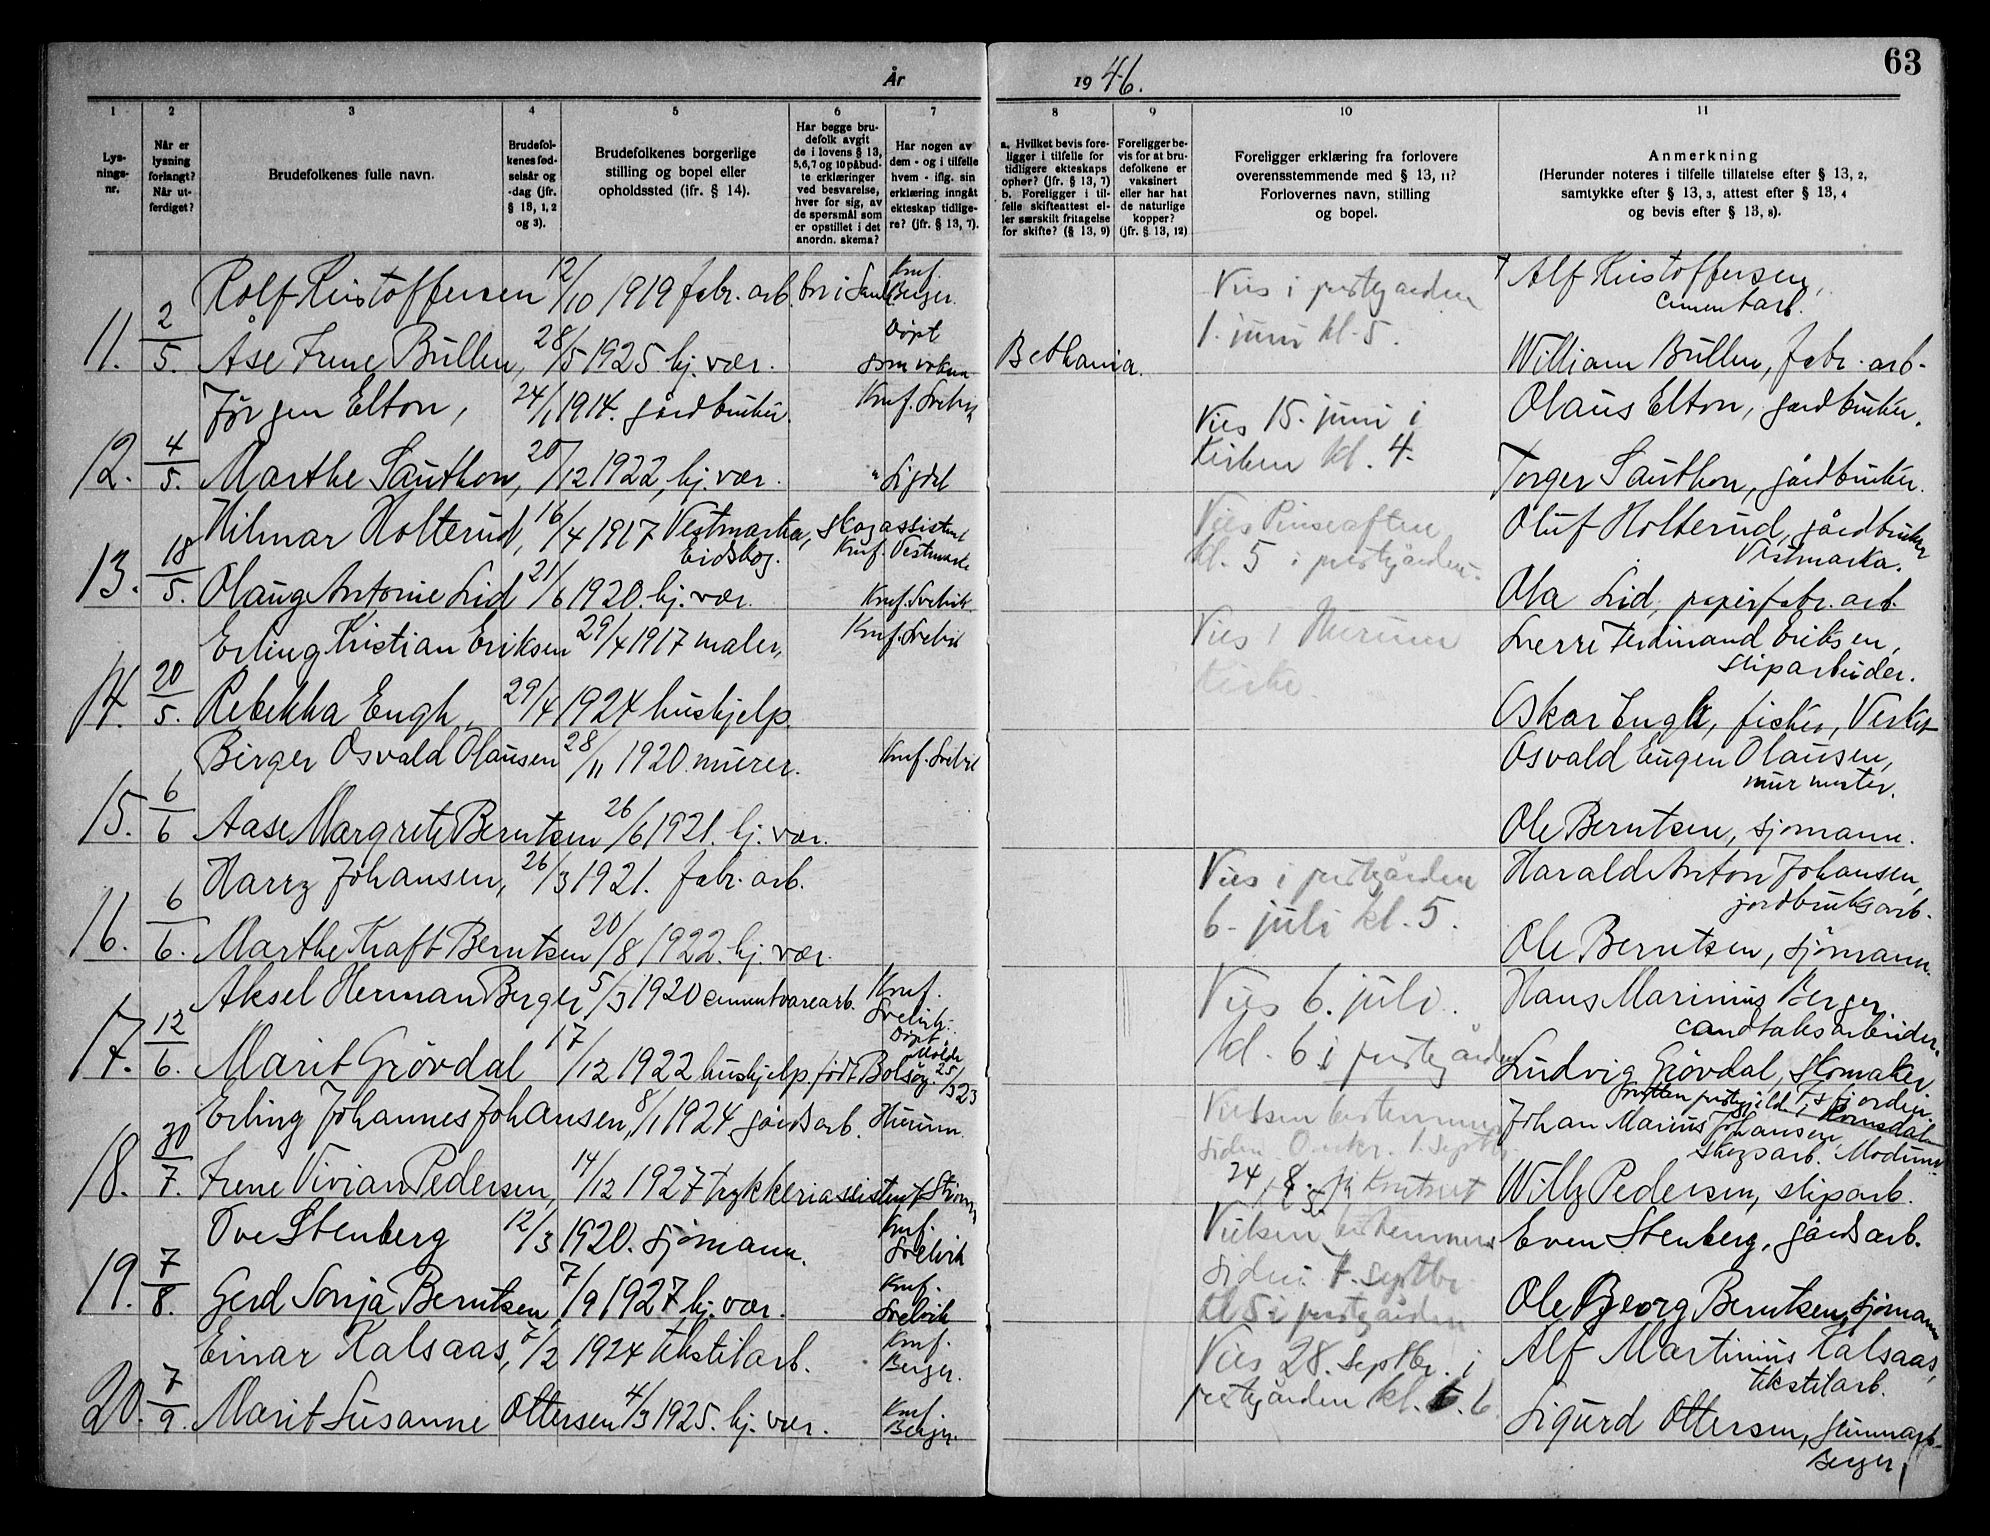 63
År 1946.
1
Lys-
nings-
nr.
2
Når er
lysning
forlangt?
Når ut-
ferdiget?
3
Brudefolkenes fulle navn.
4
Brudefol-
kenes fød-
selsår og
-dag (jfr.
§ 13, 1, 2
og 3).
5
Brudefolkenes borgerlige
stilling og bopel eller
opholdssted (jfr. § 14).
6
Har begge bru-
defolk avgit
de i lovens § 13,
5,6,7 og 10 påbud-
te erklæringer
ved besvarelse,
hver for sig, av
de spørsmål som
er opstillet i det
anordn. skema?
7
Har nogen av
dem - og i tilfelle
hvem - iflg. sin
erklæring inngått
ekteskap tidlige-
re? (jfr. § 13, 7).
8
a. Hvilket bevis fore-
ligger i tilfelle for
tidligere ekteskaps
ophør? (jfr. § 13, 7)
b. Foreligger i til-
felle skifteattest el-
ler særskilt fritagelse
for skifte? (§ 13, 9)
9
Foreligger be-
vis for at bru-
defolkene er
vaksinert
eller har hat
de naturlige
kopper?
(jfr. § 13, 12)
10
Foreligger erklæring fra forlovere
overensstemmende med § 13, 11?
Forlovernes navn, stilling
og bopel.
11
Anmerkning
(Herunder noteres i tilfelle tillatelse efter § 13, 2,
samtykke efter § 13, 3, attest efter § 13, 4
og bevis efter § 13, 8).
Rolf Kristoffersen 12/10 1919 fabr. arb. Knf. Berger. Vies i prestegaarden † Alf Kristoffersen, cementarb.
11. 2/5. Åse Irene Bullen, 28/5 1925 hj. vær. Døpt som voksen Bethania. 1. juni kl. 5. William Bullen, fabr. arb.
Jørgen Elton, 24/1 1914. gårdbruker. Knf. Svelvik Vies 15. juni i Olaus Elton, gårdbruker.
12. 4/5. Marthe Sauthon, 20/12 1922, hj. vær. " Sigdal Kirken kl. 4. Torger Sauthon, gårdbruker.
Hilmar Holterud, 16/4 1917 Vestmarka, Eidskog. skogassistent Knf. Vestmarka Vies Pinseaften Oluf Holterud, gårdbruker Vestmarka.
13. 18/5. Olaug Antonie Lid 21/6 1920. hj. vær. Knf. Svelvik kl. 5 i prestegården. Ola Lid, papirfabr. arb.
Erling Kristian Eriksen 29/4 1917 maler, Knf. Svelvik Vies i Hurum Sverre Ferdinand Eriksen, sliparbeider.
14. 20/5. Rebekka Engh, 29/4 1924 hushjelp. Kirke. Oskar Engh, fisker, Verket
Birger Osvald Olausen 28/11 1920. murer. Knf. Svelvik Osvald Eugen Olausen, murmester.
15. 6/6 Aase Margrete Berntsen 26/6 1921. hj. vær. Ole Berntsen, sjømann.
Harry Johansen, 26/3 1921. fabr. arb. Vies i prestegården Harald Anton Johansen, jordbruksarb.
16. 6/6. Marthe Kraft Berntsen 20/8 1922. hj. vær. 6. juli kl. 5. Ole Berntsen, sjømann.
Aksel Herman Berger, 5/3 1920 cementvarearb. Knf. Svelvik. Vies 6. juli. Hans Marinius Berger, sandtaksarbeider.
17. 12/6. Marit Grøvdal 17/12 1922 hushjelp. født Bolsøy. Døpt Molde 25/3 23 kl. 6 i prestegården Ludvig Grøvdal, skomaker
Erling Johannes Johansen, 8/1 1924 gårdsarb. Hurum. Vielsen bestemmes Johan Marius Johansen, skogsarb. Modum.
18. 30/7. Irene Vivian Pedersen, 14/12 1927 trykkeriassistent siden 1. septbr. 24/8. Willy Pedersen, sliparb.
Ove Stenberg 12/3 1920. sjømann. Knf. Svelvik Vielsen bestemmes Even Stenberg, gårdsarb.
19. 7/8. Gerd Sonja Berntsen, 7/9 1927, hj. vær. Knf. Svelvik siden. 7. septbr. kl 5 i prestegården Ole Georg Berntsen, sjømann
Einar Kalsaas, 7/2 1924 tekstilarb. Knf. Berger. Vies 28. septbr. i Alf Martinius Kalsaas, tekstilarb.
20. 7/9. Marit Susanne Ottersen 4/3 1925. hj. vær. Knf. Berger. prestegården kl. 6. Sigurd Ottersen, Berger